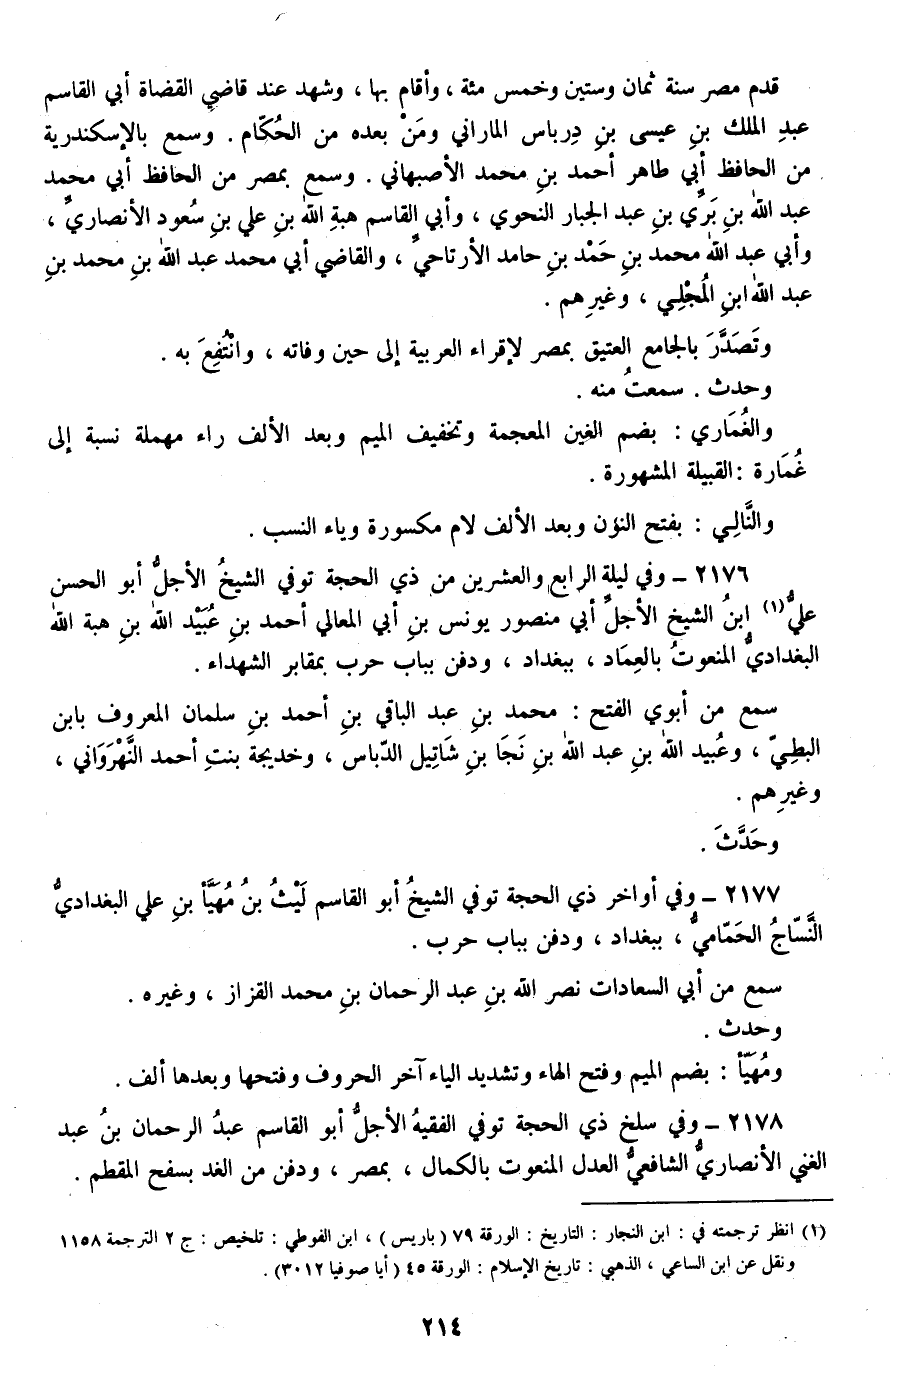 قدم مصر سنة ثمان وستين وخمس مئة ، وأقام بها ، وشهد عند قاضي القضاة أبي القاسم
عبدِ الملك بنِ عيسى بنِ دِرباس الماراني ومَنْ بعده من الحُكّام . وسمع بالإسكندرية
من الحافظ أبي طاهر أحمد بنِ محمد الأصبهاني . وسمع بمصر من الحافظ أبي محمد
عبد الله بنِ بَرّي بنِ عبد الجبار النحوي ، وأبي القاسم هبةِ الله بنِ علي بنِ سُعود الأنصاريِّ ،
وأبي عبد الله محمد بنِ حَمْد بنِ حامد الأرتاحيِّ ، والقاضي أبي محمد عبد الله بنِ محمد بنِ
عبد الله ابنِ المُجْلِي ، وغيرِهم .
وتَصَدَّرَ بالجامع العتيق بمصر لإقراء العربية إلى حين وفاته ، وانْتُفِعَ به .
وحدث . سمعتُ منه .
والغُمَاري : بضم الغين المعجمة وتخفيف الميم وبعد الألف راء مهملة نسبة إلى
غُمَارة : القبيلة المشهورة .
والنَّالِي : بفتح النؤن وبعد الألف لام مكسورة وياء النسب .
٢١٧٦ – وفي ليلة الرابع والعشرين من ذي الحجة توفي الشيخُ الأجلُّ أبو الحسن
عليُّ (١) ابنُ الشيخ الأجلِّ أبي منصور يونس بنِ أبي المعالي أحمد بنِ عُبَيْد الله بنِ هبة الله
البغداديُّ المنعوتُ بالعِمَاد ، ببغداد ، ودفن بباب حرب بمقابر الشهداء .
سمع من أبوي الفتح : محمد بنِ عبد الباقي بنِ أحمد بنِ سلمان المعروف بابن
البطِيّ ، وعُبيد الله بنِ عبد الله بنِ نَجَا بنِ شَاتِيل الدّباس ، وخديجة بنتِ أحمد النَّهْرَوَاني ،
وغيرِهم .
وحَدَّثَ .
٢١٧٧ – وفي أواخر ذي الحجة توفي الشيخُ أبو القاسم لَيْثُ بنُ مُهَيَّأ بنِ علي البغداديُّ
النَّسّاجُ الحَمّاميُّ ، ببغداد ، ودفن بباب حرب .
سمع من أبي السعادات نصر الله بنِ عبد الرحمان بنِ محمد القزاز ، وغيره .
وحدث .
ومُهَيّأ : بضم الميم وفتح الهاء وتشديد الياء آخر الحروف وفتحها وبعدها ألف .
٢١٧٨ – وفي سلخ ذي الحجة توفي الفقيهُ الأجلُّ أبو القاسم عبدُ الرحمان بنُ عبد
الغني الأنصاريُّ الشافعيُّ العدل المنعوت بالكمال ، بمصر ، ودفن من الغد بسفح المقطم .
(١) انظر ترجمته في : ابن النجار : التاريخ : الورقة ٧٩ ( باريس ) ، ابن الفوطي : تلخيص : ج ٢ الترجمة ١١٥٨
ونقل عن ابن الساعي ، الذهبي : تاريخ الإسلام : الورقة ٤٥ ( أيا صوفيا ٣٠١٢ ) .
٢١٤